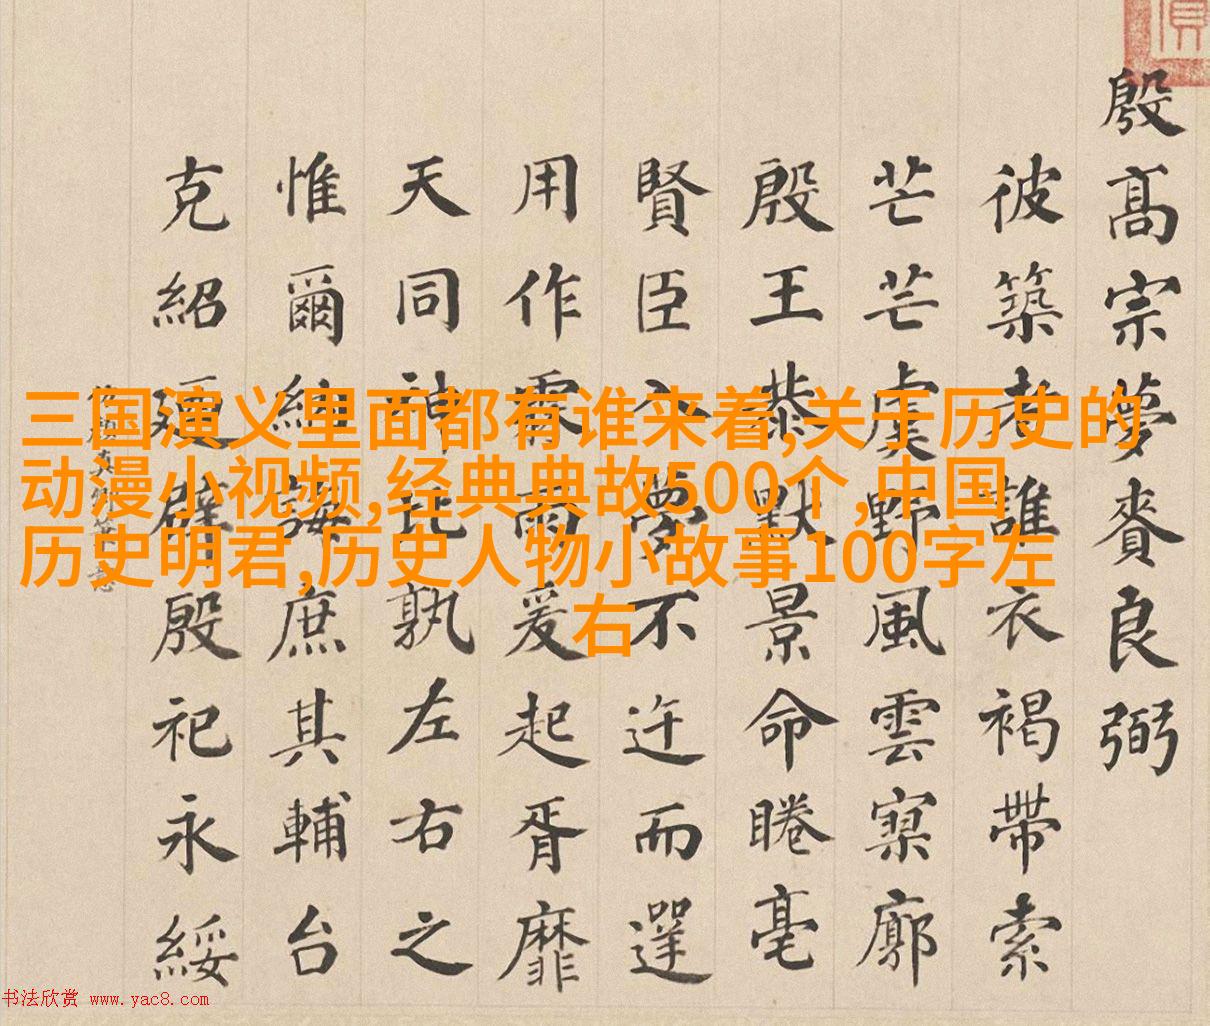 殷髙宗夢賚良弼
彼築者誰衣褐帶索
芒芒虞野風雲寥廓
殷王恭默景命睠亳
賢臣入夢不迕而遻
用作霖雨爰起胥靡
天同神比孰左右之
惟爾納誨庶其輔台
克紹廼辟殷祀永綏
三国演义里面都有谁来着,关于历史的
动漫小视频,经典典故500个,中国
历史明君,历史人物小故事100字左
右
书法欣赏 www.yac8.com